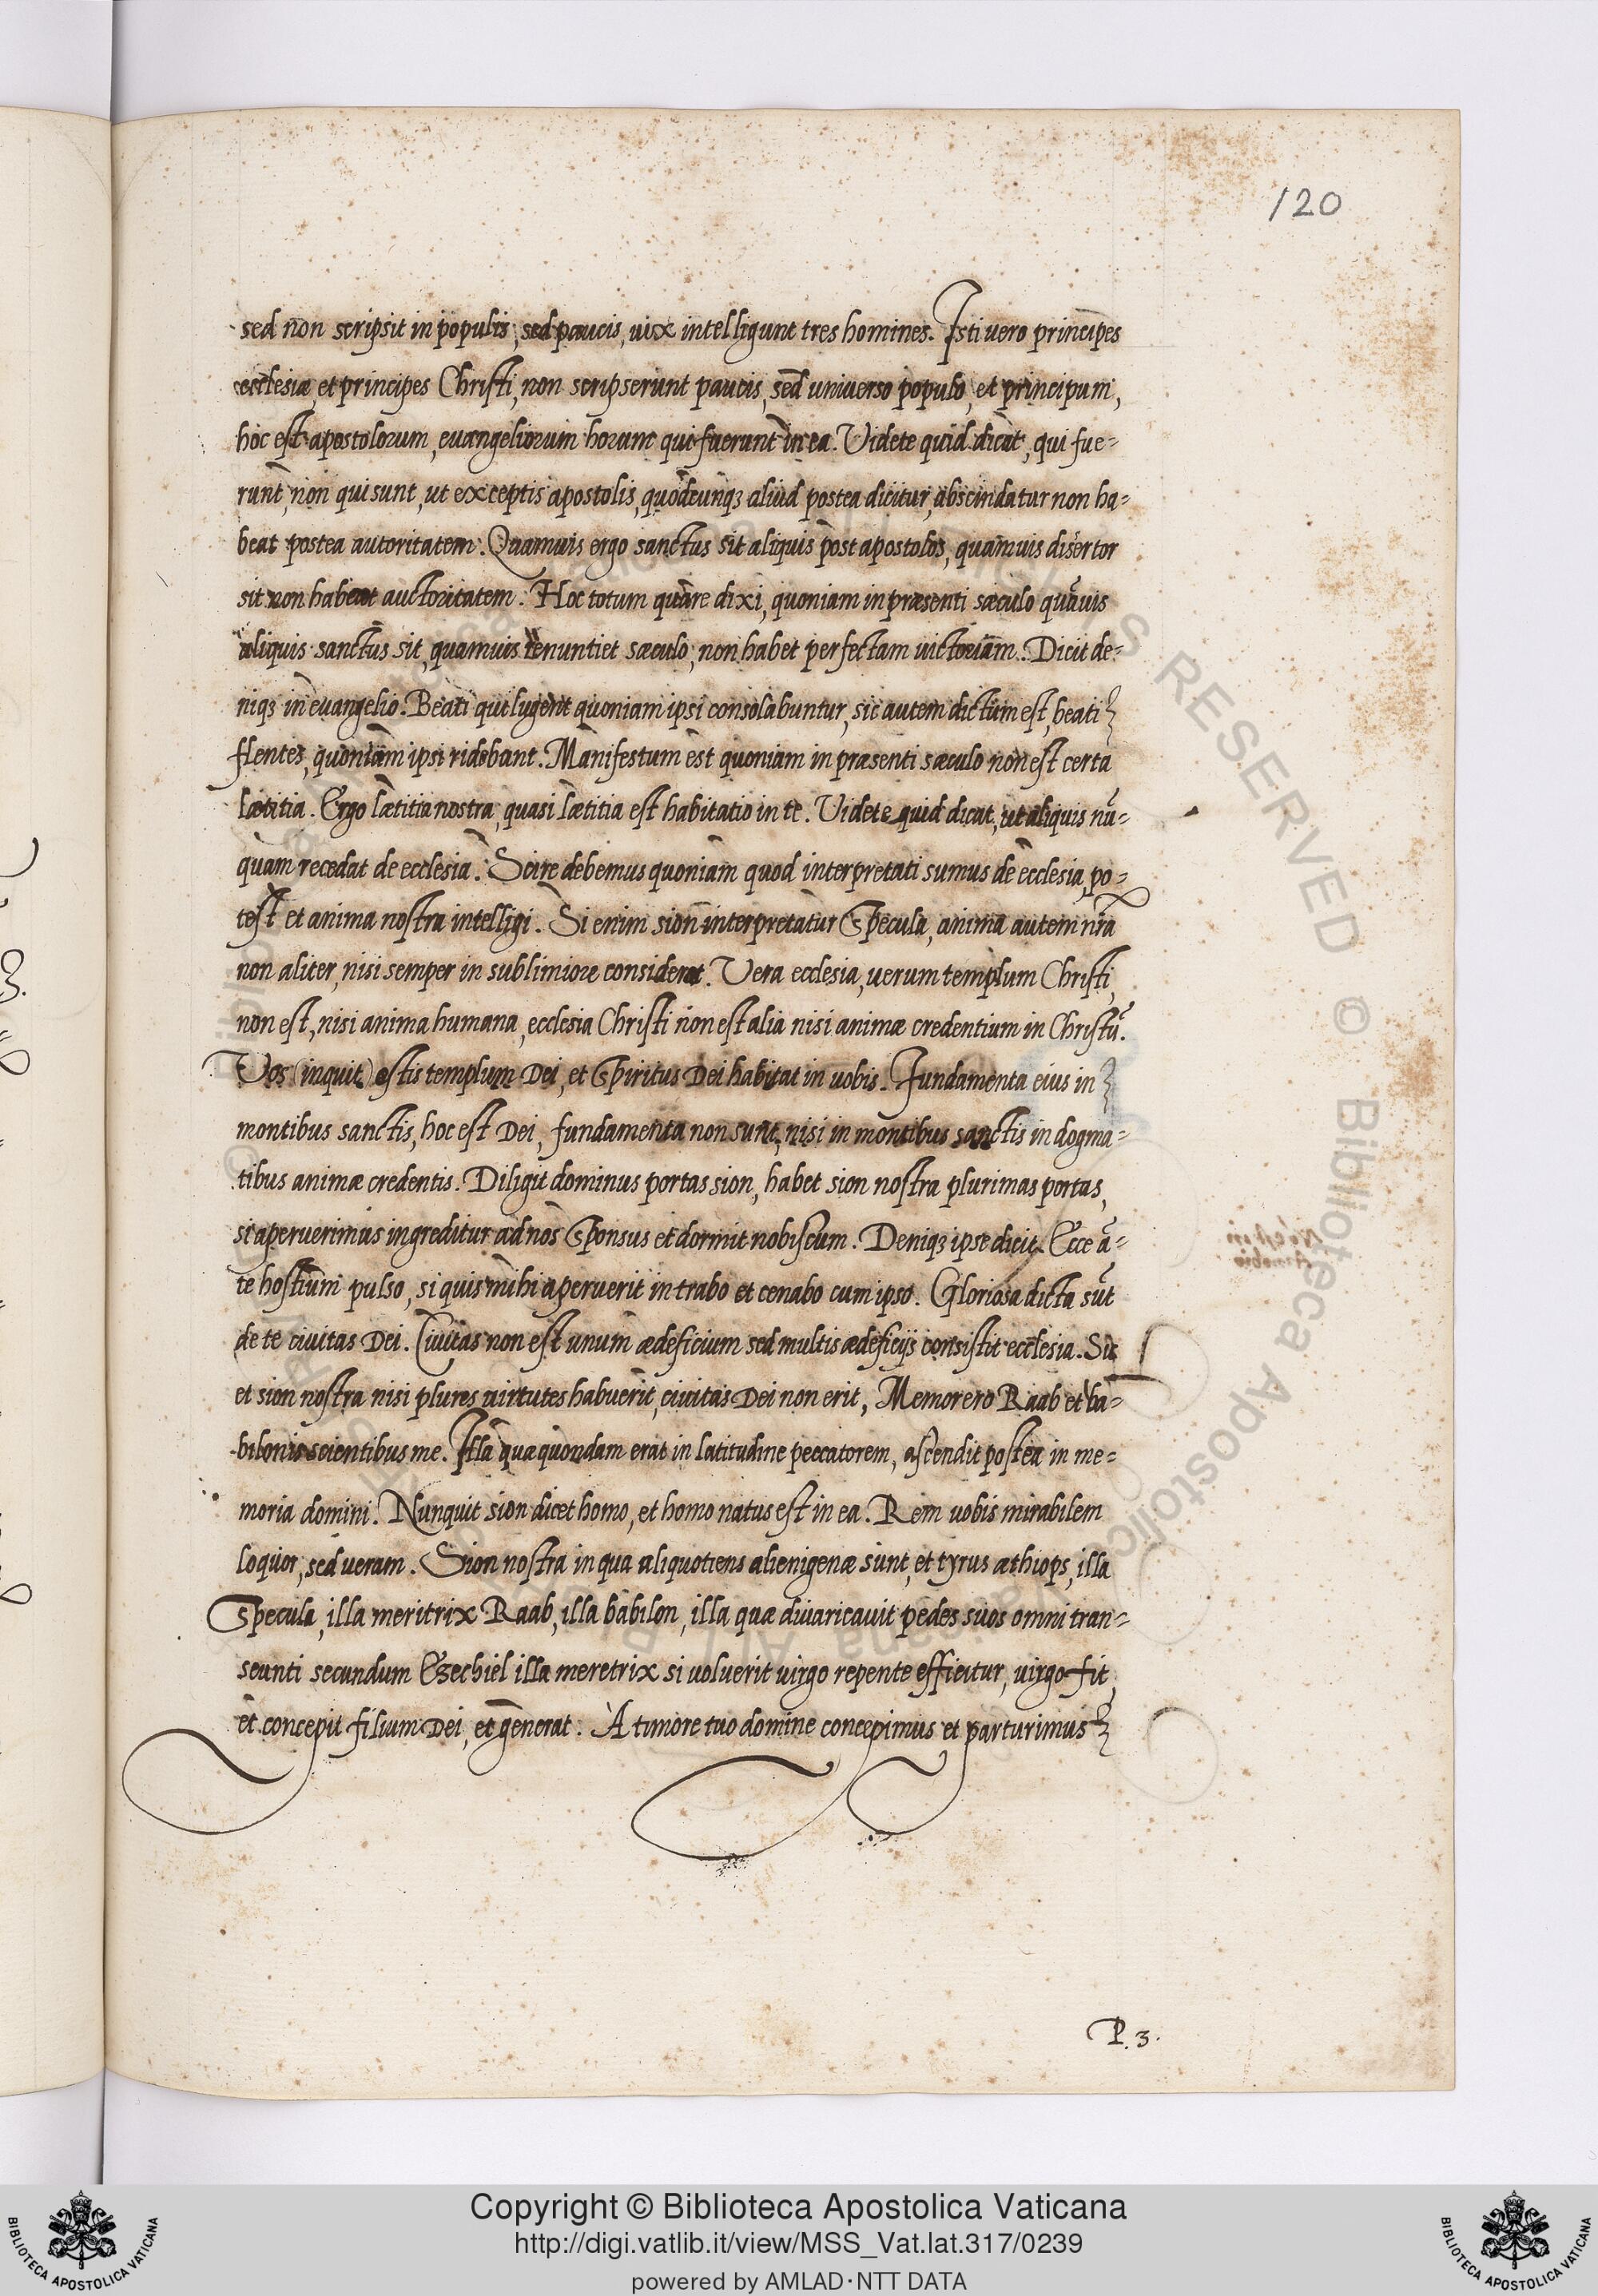 120
sed non scripsit in populis, sed paucis, uix intelligunt tres homines. Isti uero principes
ecclesiæ, et principes Christi, non scripserunt paucis, sed universo populo, et principum,
hoc est apostolorum, euangeliorum horum qui fuerunt in ea. Videte quid dicat, qui fue=
runt, non qui sunt, ut exceptis apostolis, quodcunqꝫ aliud postea dicitur, abscindatur non ha=
beat postea autoritatem. Quamuis ergo sanctus sit aliquis post apostolos, quamuis disertor
sit non habeat auctoritatem. Hoc totum quare dixi, quoniam in præsenti sæculo quãuis
aliquis sanctus sit, quamuis renuntiet sæculo, non habet perfectam uictoriam. Dicit de=
niqꝫ in euangelio. Beati qui lugent quoniam ipsi consolabuntur, sic autem dictum est, beati
flentes, quoniam ipsi ridebunt. Manifestum est quoniam in præsenti sæculo non est certa
lætitia. Ergo lætitia nostra, quasi lætitia est habitatio in te. Videte quid dicat, ut aliquis nũ=
quam recedat de ecclesia. Scire debemus quoniam quod interpretati sumus de ecclesia, po=
test et anima nostra intelligi. Si enim sion interpretatur Specula, anima autem nr̃a
non aliter, nisi semper in sublimiore considerat. Vera ecclesia, uerum templum Christi,
non est, nisi anima humana, ecclesia Christi non est alia nisi animæ credentium in Christũ.
Vos (inquit) estis templum Dei, et Spiritus Dei habitat in uobis. Fundamenta eius in
montibus sanctis, hoc est Dei, fundamenta non sunt, nisi in montibus sanctis in dogma=
tibus animæ credentis. Diligit dominus portas sion, habet sion nostra plurimas portas,
si aperuerimus ingreditur ad nos Sponsus et dormit nobiscum. Deniqꝫ ipse dicit. Ecce ã=
te hostium pulso, si quis mihi aperuerit intrabo et cenabo cum ipso. Gloriosa dicta sũt
de te ciuitas Dei. Ciuitas non est unum ædeficium sed multis ædeficijs consistit ecclesia. Sic
et sion nostra nisi plures uirtutes habuerit, ciuitas Dei non erit, Memorero Raab et ba=
bilonis scientibus me. Illa quæ quondam erat in latitudine peccatorem, ascendit postea in me=
moria domini. Nunquit sion dicet homo, et homo natus est in ea. Rem uobis mirabilem
loquor, sed ueram. Sion nostra in qua aliquotiens alienigenæ sunt, et tyrus æthiops, illa
Specula, illa meritrix Raab, illa babilon, illa quæ diuaricauit pedes suos omni tran=
seunti secundum Ezechiel illa meretrix si uoluerit uirgo repente efficitur, uirgo fit,
et concepit filium Dei, et generat. A timore tuo domine concepimus et parturimus
P. 3.
Copyright © Biblioteca Apostolica Vaticana
http://digi.vatlib.it/view/MSS_Vat.lat.317/0239
powered by AMLAD·NTT DATA
BIBLIOTECA APOSTOLICA VATICANA
BIBLIOTECA APOSTOLICA VATICANA